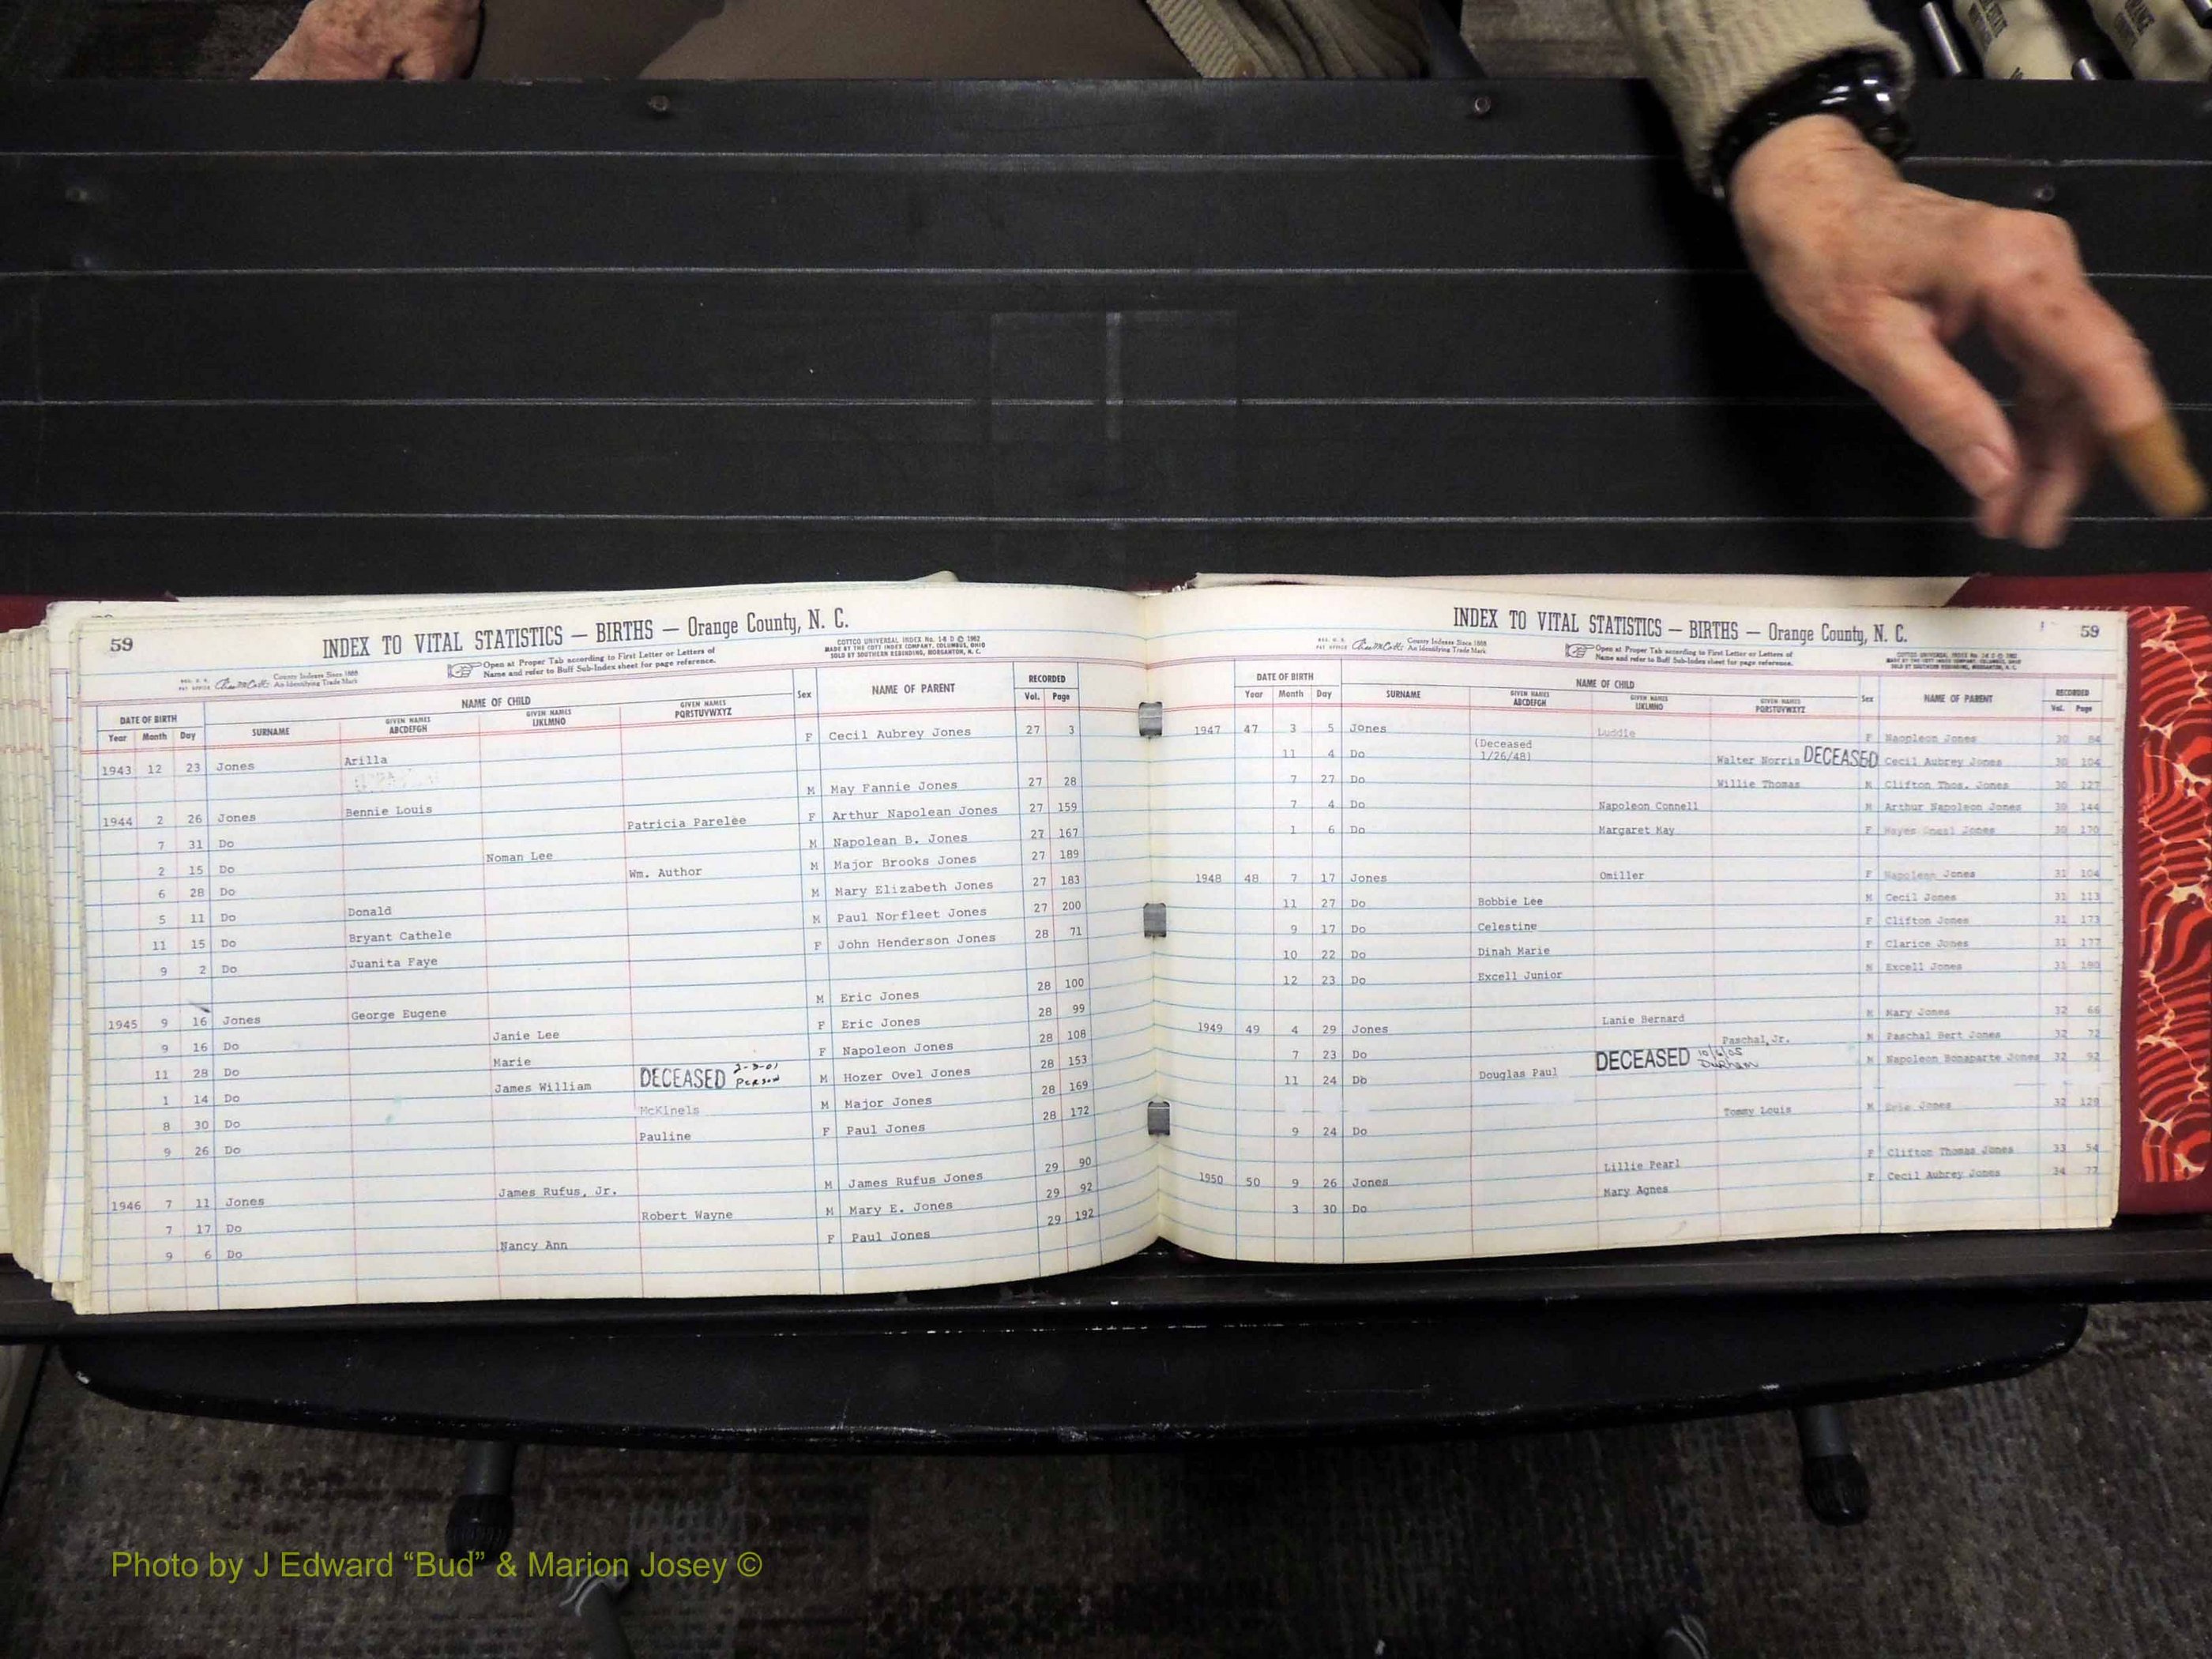 59
INDEX TO VITAL STATISTICS — BIRTHS — Orange County, N. C.
COTTCO UNIVERSAL INDEX No. 1-8 D © 1962
MADE BY THE COTT INDEX COMPANY, COLUMBUS, OHIO
SOLD BY SOUTHERN REBINDING, MORGANTON, N. C.
County Indexes Since 1888
An Identifying Trade Mark
Open at Proper Tab according to First Letter or Letters of
Name and refer to Buff Sub-Index sheet for page reference.
DATE OF BIRTH NAME OF CHILD Sex NAME OF PARENT RECORDED
Year Month Day SURNAME GIVEN NAMES ABCDEFGH GIVEN NAMES IJKLMNO GIVEN NAMES PQRSTUVWXYZ Vol. Page
1943 12 23 Jones Arilla F Cecil Aubrey Jones 27 3
1944 2 26 Jones Bennie Louis M May Fannie Jones 27 28
7 31 Do Patricia Parelee F Arthur Napolean Jones 27 159
2 15 Do Noman Lee M Napolean B. Jones 27 167
6 28 Do Wm. Author M Major Brooks Jones 27 189
5 11 Do Donald M Mary Elizabeth Jones 27 183
11 15 Do Bryant Cathele M Paul Norfleet Jones 27 200
9 2 Do Juanita Faye F John Henderson Jones 28 71
1945 9 16 Jones George Eugene M Eric Jones 28 100
9 16 Do Janie Lee F Eric Jones 28 99
11 28 Do Marie F Napoleon Jones 28 108
1 14 Do James William DECEASED 2-9-01 Person M Hozer Ovel Jones 28 153
8 30 Do McKinels M Major Jones 28 169
9 26 Do Pauline F Paul Jones 28 172
1946 7 11 Jones James Rufus, Jr. M James Rufus Jones 29 90
7 17 Do Robert Wayne M Mary E. Jones 29 92
9 6 Do Nancy Ann F Paul Jones 29 192
INDEX TO VITAL STATISTICS — BIRTHS — Orange County, N. C.
59
County Indexes Since 1888
An Identifying Trade Mark
Open at Proper Tab according to First Letter or Letters of
Name and refer to Buff Sub-Index sheet for page reference.
DATE OF BIRTH NAME OF CHILD Sex NAME OF PARENT RECORDED
Year Month Day SURNAME GIVEN NAMES ABCDEFGH GIVEN NAMES IJKLMNO GIVEN NAMES PQRSTUVWXYZ Vol. Page
1947 47 3 5 Jones Luddie F Napoleon Jones 30 84
11 4 Do (Deceased 1/26/48) Walter Norris DECEASED Cecil Aubrey Jones 30 104
7 27 Do Willie Thomas M Clifton Thos. Jones 30 127
7 4 Do Napoleon Connell M Arthur Napoleon Jones 30 144
1 6 Do Margaret May F Jones 30 170
1948 48 7 17 Jones Omiller F Napoleon Jones 31 104
11 27 Do Bobbie Lee M Cecil Jones 31 113
9 17 Do Celestine F Clifton Jones 31 173
10 22 Do Dinah Marie F Clarice Jones 31 177
12 23 Do Excell Junior M Excell Jones 31 180
1949 49 4 29 Jones Lanie Bernard M Mary Jones 32 66
7 23 Do Paschal, Jr. M Paschal Bert Jones 32 72
11 24 Do Douglas Paul DECEASED 10/6/05 Durham M Napoleon Bonaparte Jones 32 92
9 24 Do Tommy Louis M Eric Jones 32 129
1950 50 9 26 Jones Lillie Pearl F Clifton Thomas Jones 33 54
3 30 Do Mary Agnes F Cecil Aubrey Jones 34 77
Photo by J Edward “Bud” & Marion Josey ©